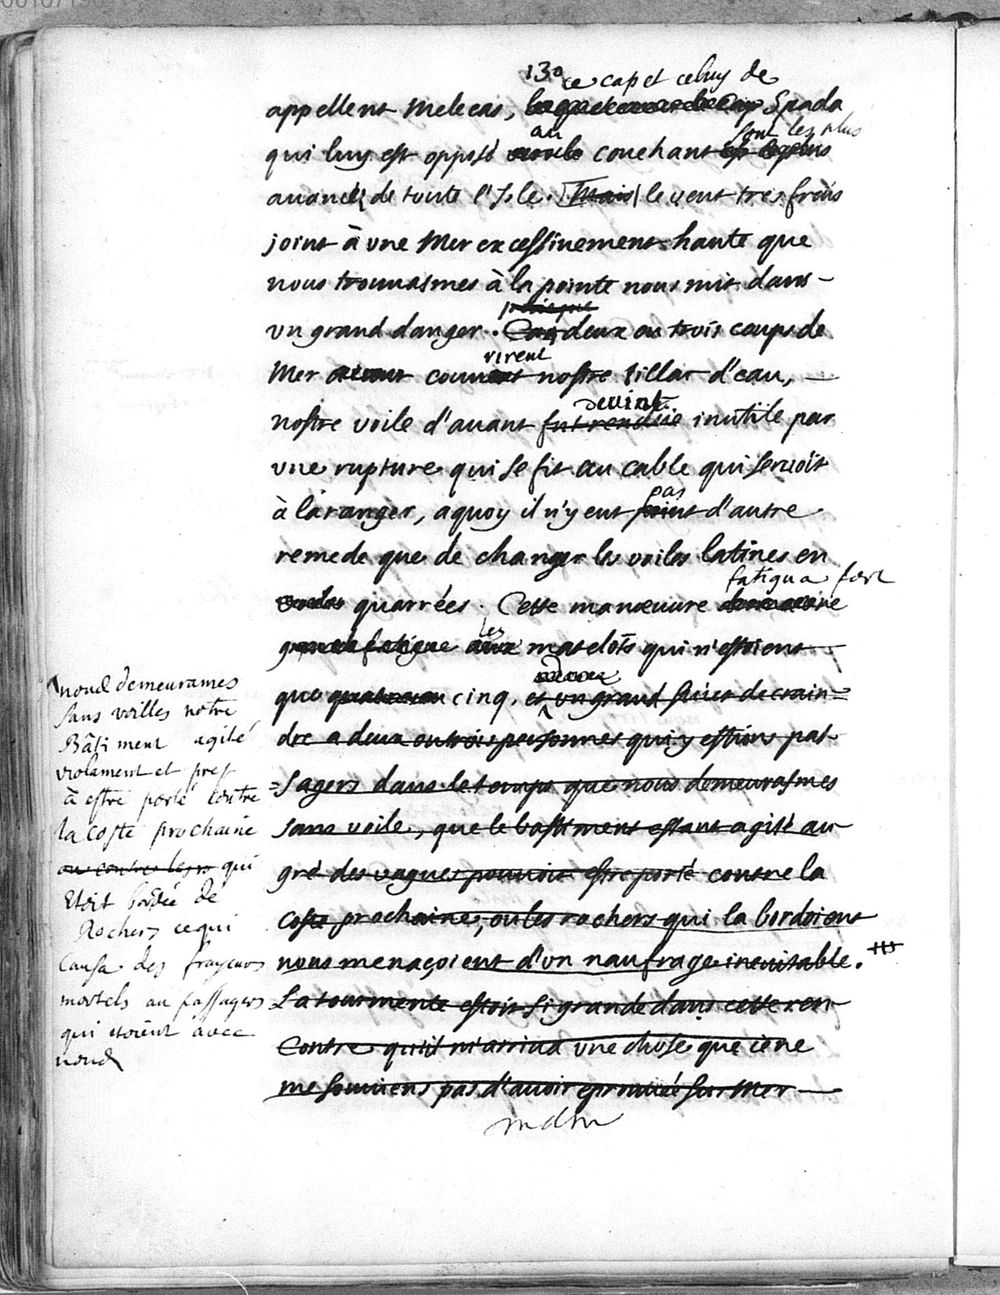 130
ce cap et celuy de
appellent Melecas, Spada
au sont les plus
qui luy est opposé couchant
auancés de toute l'Isle. Mais le vent tres frais
joint à vne Mer excessiuement haute que
nous trouuasmes à la pointe nous mit dans
presque
vn grand danger. Car deux ou trois coups de
virent
Mer couurent nostre tillac d'eau,
deuint
nostre voile d'auant fut rendüe inutile par
vne rupture qui se fit au cable qui seruoit
pas
à la ranger, a quoy il n'y eut point d'autre
remede que de changer les voiles latines en
fatigua fort
voiles quarrées. Cette manœuure donna une
les
grande fatigue aux matelots qui n'estoient
que cinq, et vn grand suiet de crain=
dre a deux ou trois personnes qui y estions pas-
=sagers dans le temps que nous demeurasmes
sans voile, que le bastiment estant agité au
gré des vagues pouuoit estre porté contre la
coste prochaine, ou les rochers qui la bordoient
nous menaçoient d'vn naufrage ineuitable.
La tourmente estoit si grande dans cette ren-
contre qu'il m'arriua vne chose que ie ne
me souuiens pas d'auoir eprouuée sur Mer
nous demeurames
sans voilles notre
Bâtiment agité
violament et prest
à estre porté contre
la coste prochaine
ou contre les qui
etoit bordée de
Rochers ce qui
causa des frayeurs
mortels au passagers
qui etoient avec
nous